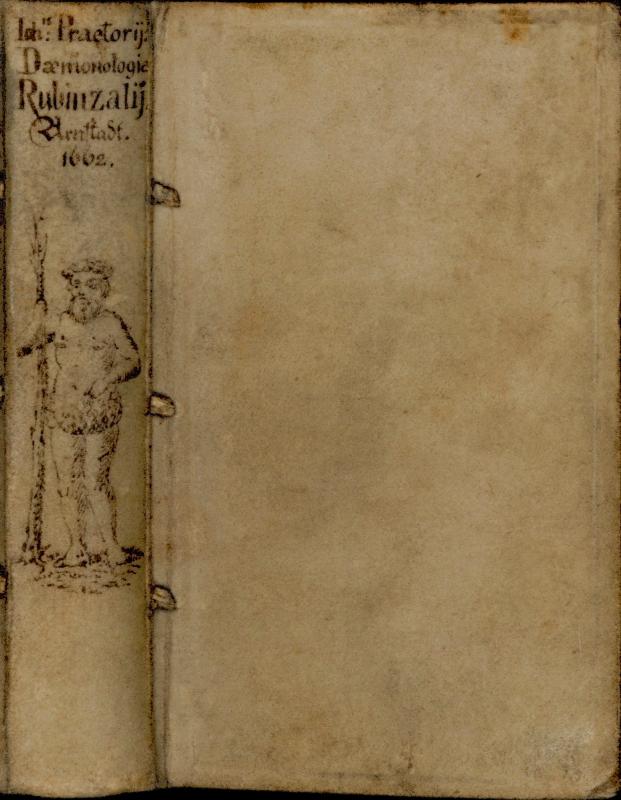 Ioh: Praetorij
Dæmonologie
Rubinzalij
Arnstadt.
1662.